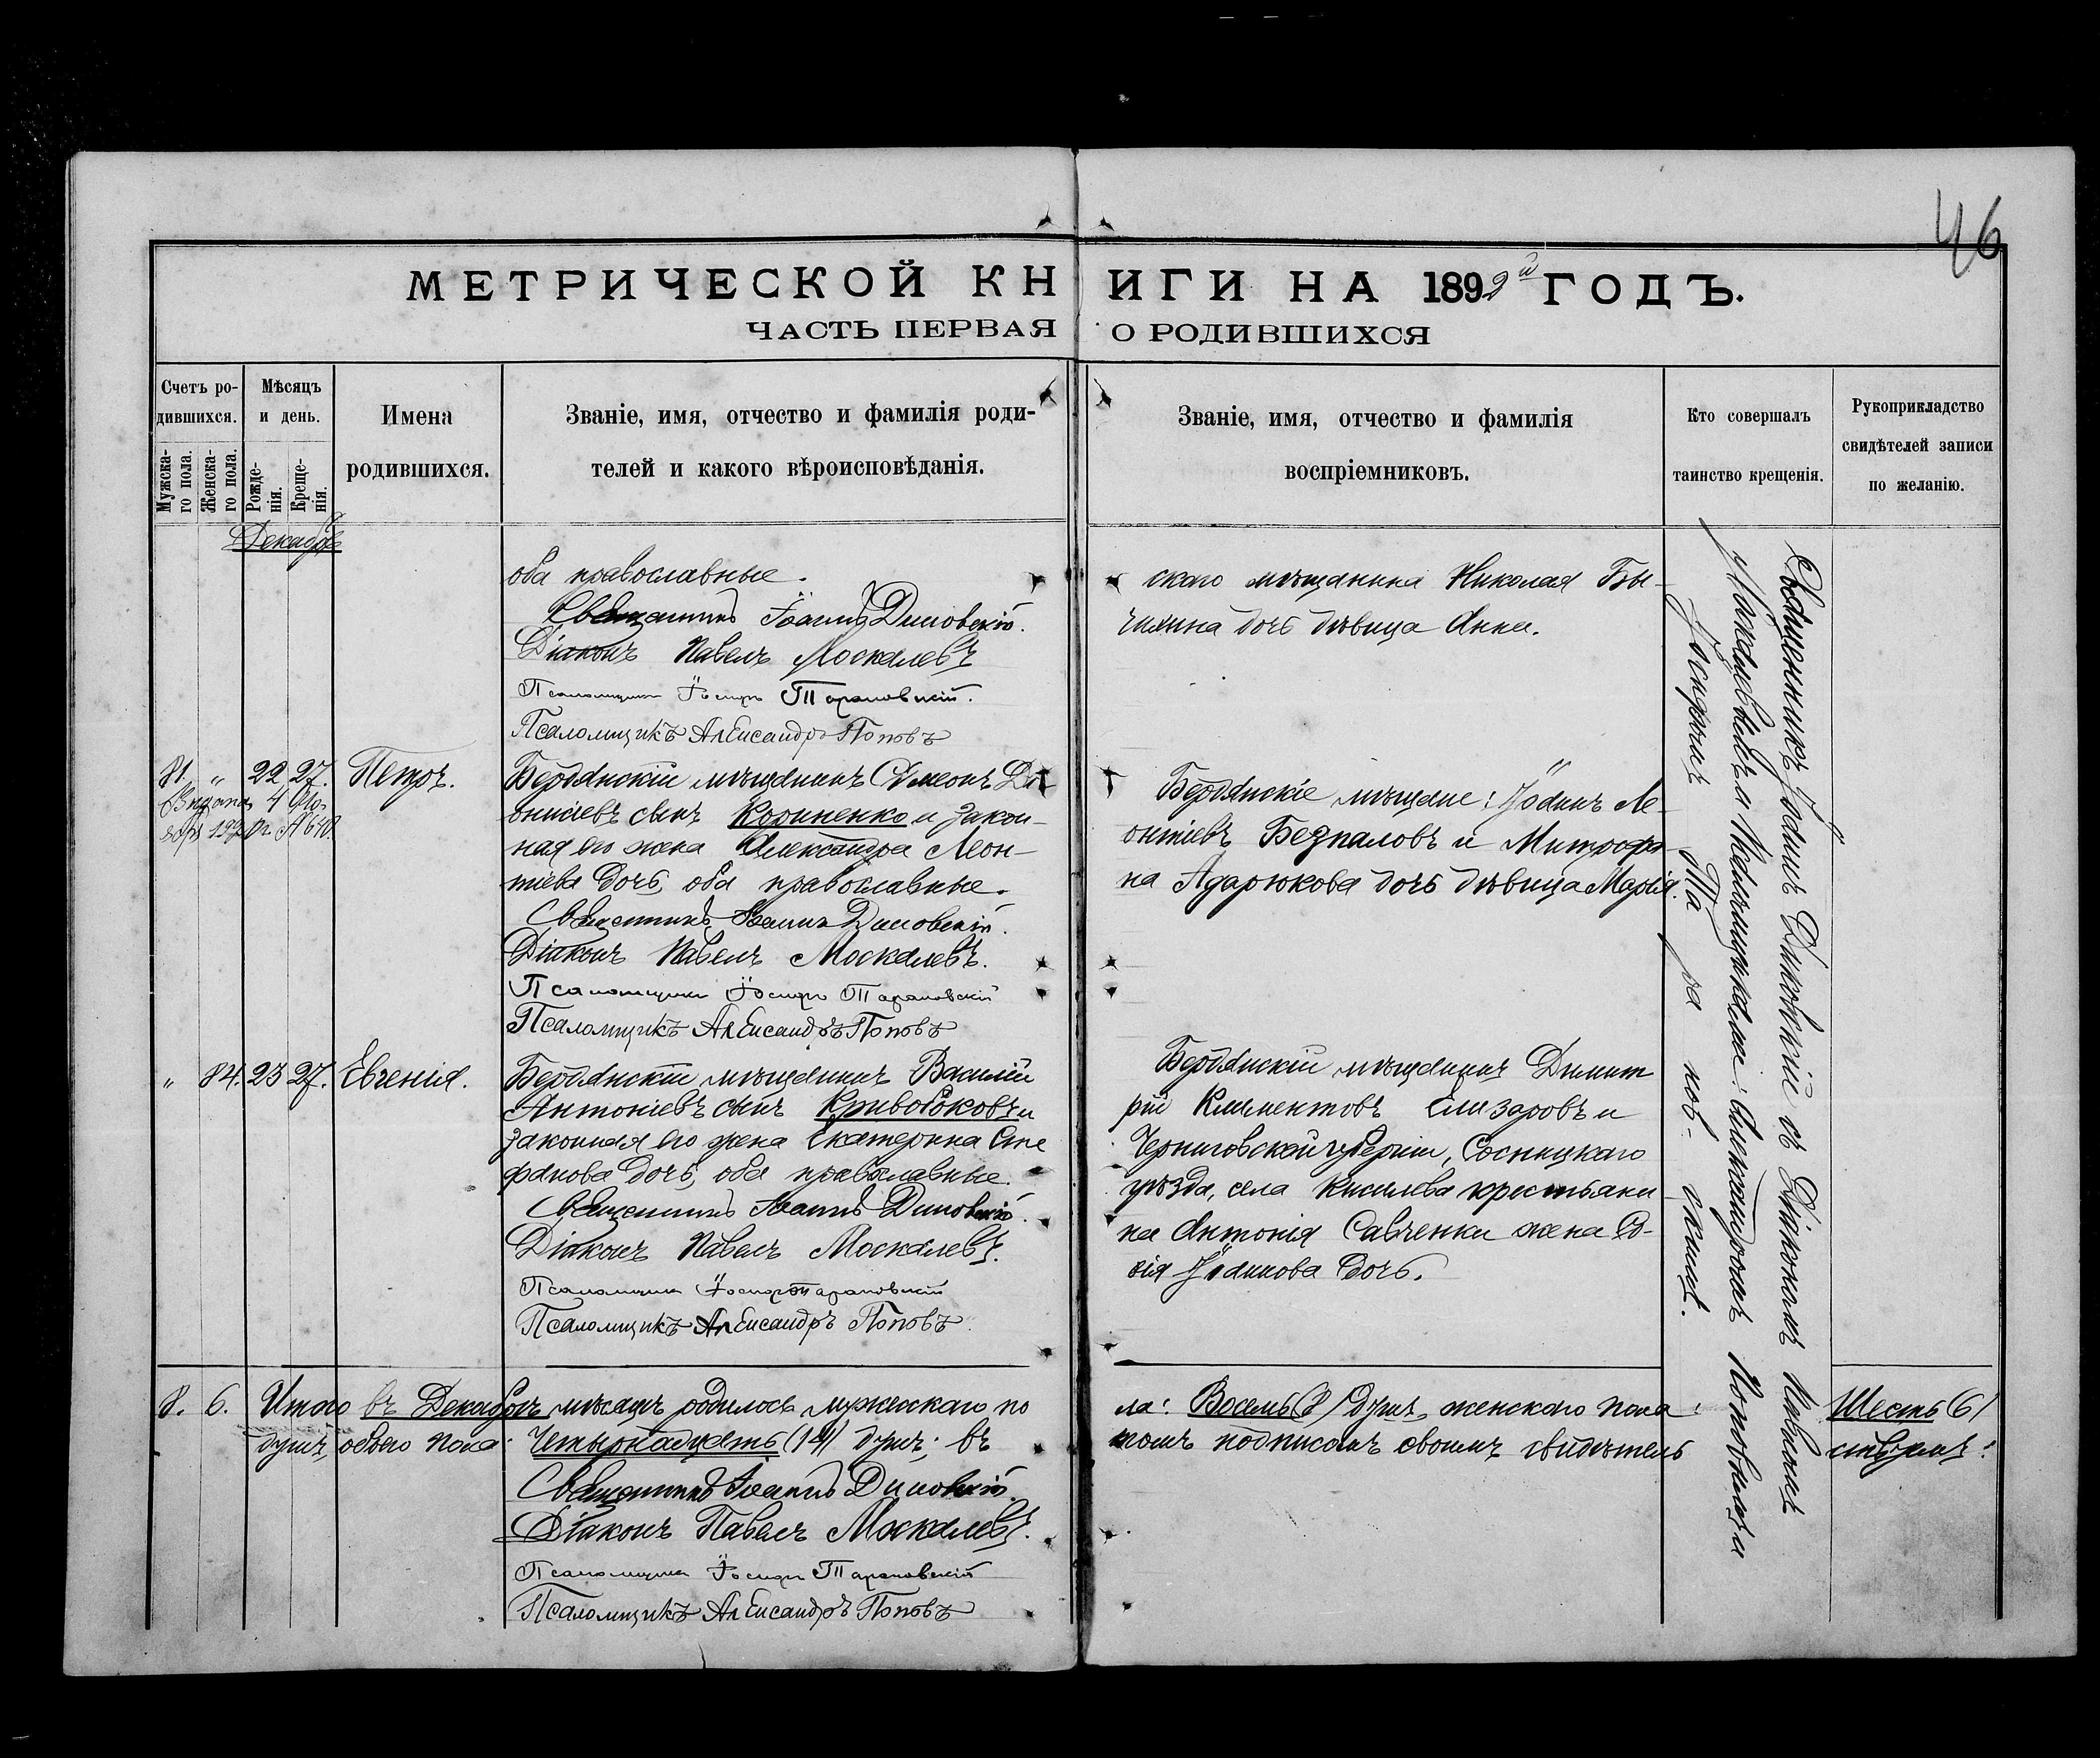 46
МЕТРИЧЕСКОЙ КНИГИ НА 1892й ГОДЪ.
ЧАСТЬ ПЕРВАЯ О РОДИВШИХСЯ
Счетъ ро-
дившихся.
Мужска-
го пола.
Женска-
го пола.
Мѣсяцъ
и день.
Рожде-
нія.
Креще-
нія.
Имена
родившихся.
Званіе, имя, отчество и фамилія роди-
телей и какого вѣроисповѣданія.
Званіе, имя, отчество и фамилія
воспріемниковъ.
Кто совершалъ
таинство крещенія.
Рукоприкладство
свидѣтелей записи
по желанію.
Декабрь
оба православные.
Священникъ Іоаннъ Диковскій.
Діаконъ Павелъ Москалевъ
Псаломщикъ Іосифъ Тарановскій.
Псаломщикъ Александръ Поповъ
скаго мѣщанина Николая Бы-
чихина дочь дѣвица Анна.
81. " 22 27. Петръ.
Бердянскій мѣщанинъ Симеонъ Ді-
онисіевъ сынъ Кориненко и закон-
ная его жена Александра Леон-
тіева дочь, оба православные.
Священникъ Іоаннъ Диковскій.
Діаконъ Павелъ Москалевъ.
Псаломщикъ Іосифъ Тарановскій
Псаломщикъ Александръ Поповъ
Бердянскіе мѣщане: Іоаннъ Ле-
онтіевъ Безпаловъ и Митрофа-
на Адарюкова дочь дѣвица Марія.
" 84. 23 27. Евгенія.
Бердянскій мѣщанинъ Василій
Антоніевъ сынъ Кривобоковъ и
законная его жена Екатерина Сте
фанова дочь, оба православные.
Священникъ Іоаннъ Диковскій.
Діаконъ Павелъ Москалевъ.
Псаломщикъ Іосифъ Тарановскій
Псаломщикъ Александръ Поповъ
Бердянскій мѣщанинъ Димит
рій Климентовъ Елизаровъ и
Черниговской губерніи, Сосницкаго
уѣзда, села Киселева крестьяни-
на Антонія Савченки жена Со-
фія Іоаннова дочь.
Священникъ Іоаннъ Диковскій съ Діакономъ Павломъ
Москалевымъ и Псаломщиками: Александромъ Поповымъ и
Іосифомъ Тарановскимъ.
8. 6. Итого въ Декабрѣ мѣсяцѣ родилось мужескаго по
ла: Восемь (8) душъ, женскаго пола: Шесть (6)
душъ, обоего пола: Четырнадцать (14) душъ; въ
томъ подписомъ своимъ свидѣтель ствуемъ:
Священникъ Іоаннъ Диковскій.
Діаконъ Павелъ Москалевъ.
Псаломщикъ Іосифъ Тарановскій
Псаломщикъ Александръ Поповъ